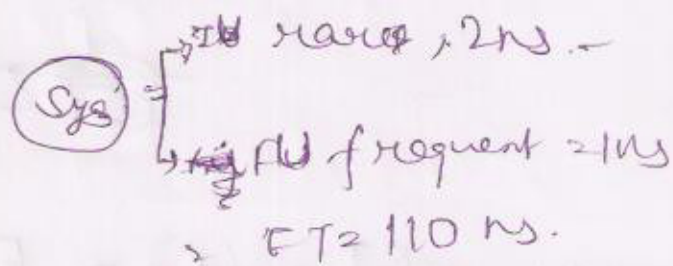 rare, 2ns.
Sys
frequent = 1ns
ET = 110 ns.